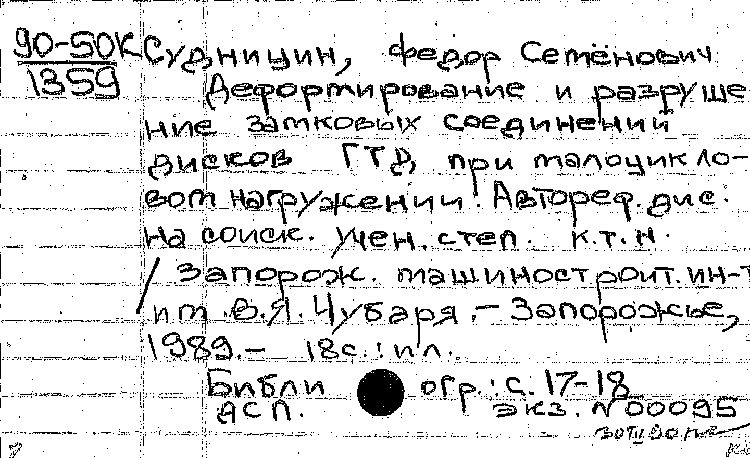 90-50К Судницин, Федор Семёнович
1359 Деформирование и разруше
ние замковых соединений
дисков ГТД при малоцикло-
вом нагружении: Автореф. дис.
на соиск. учен. степ. к.т.н.
/ Запорож. машиностроит. ин-т
им. В.Я. Чубаря. - Запорожье,
1989. - 18с.: ил.
Библиогр.: с. 17-18
ДСП. экз. N 00095